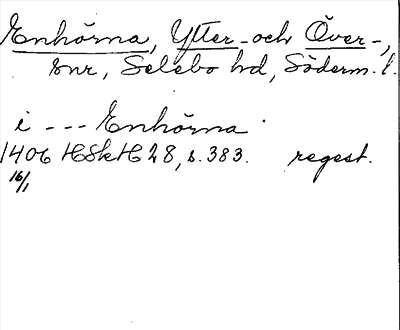 Enhörna, Ytter- och Över-,
snr, Selebo hd, Söderm. l.
i --- Enhörna
1406 HSkH 28, s. 383. regest.
16/1